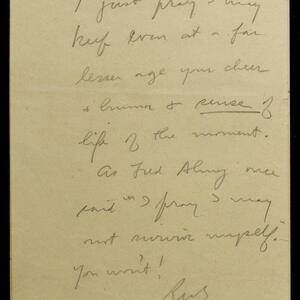 I just pray I may
keep even at a far
lesser age your cheer
& humor & sense of
life of the moment.
As Fred Almy once
said "I pray I may
not survive myself."
You won't!